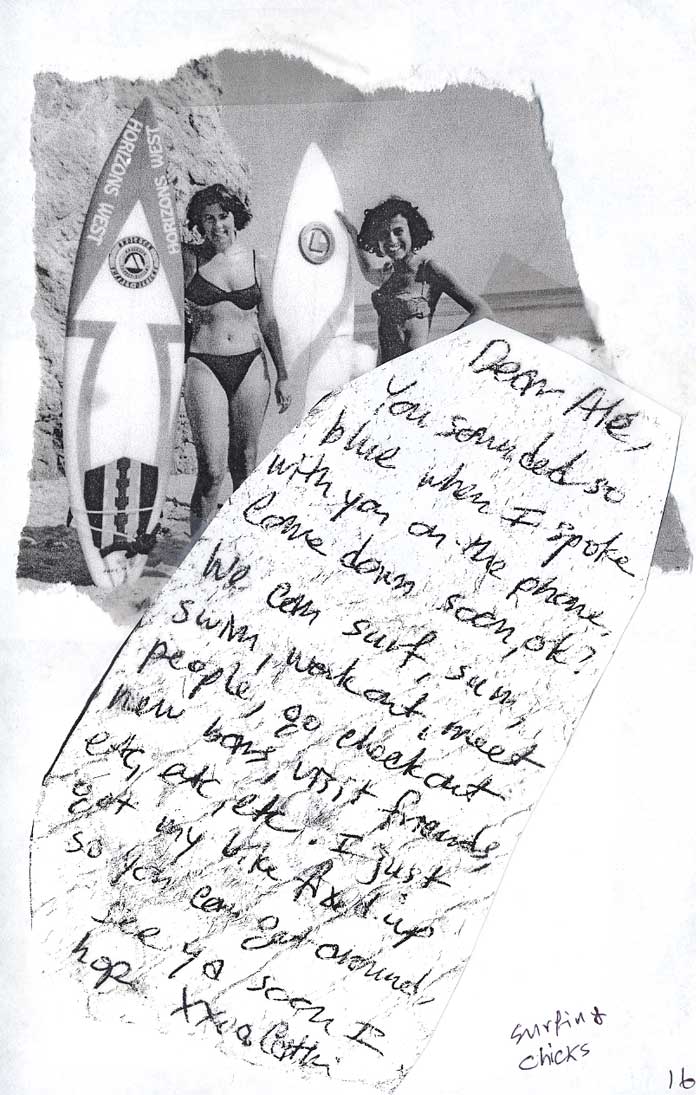 HORIZONS WEST
HORIZONS WEST
Dear Ale,
You sounded so
blue when I spoke
with you on the phone.
Come down soon, ok?
We can surf, sun,
swim, workout, meet
people, go checkout
new bars, visit friends,
etc, etc, etc. I just
got my bike fixed up
so you can get around,
see ya soon I
hop xxoo
surfing
chicks
16